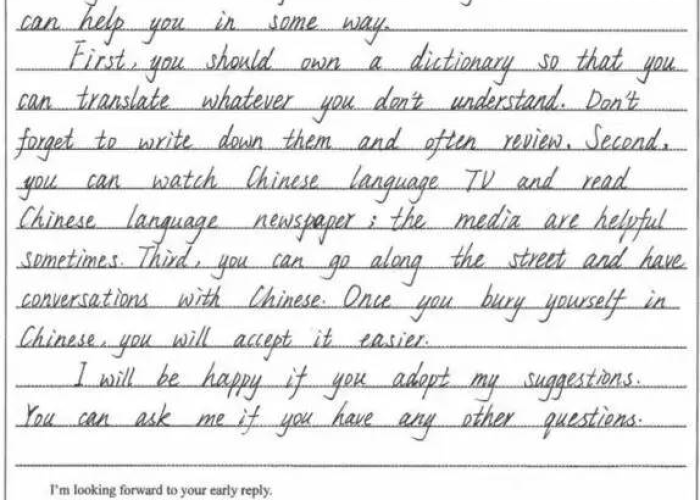 can help you in some way.
First, you should own a dictionary so that you
can translate whatever you don't understand. Don't
forget to write down them and often review. Second,
you can watch Chinese language TV and read
Chinese language newspaper; the media are helpful
sometimes. Third, you can go along the street and have
conversations with Chinese. Once you bury yourself in
Chinese, you will accept it easier.
I will be happy if you adopt my suggestions.
You can ask me if you have any other questions.
I'm looking forward to your early reply.